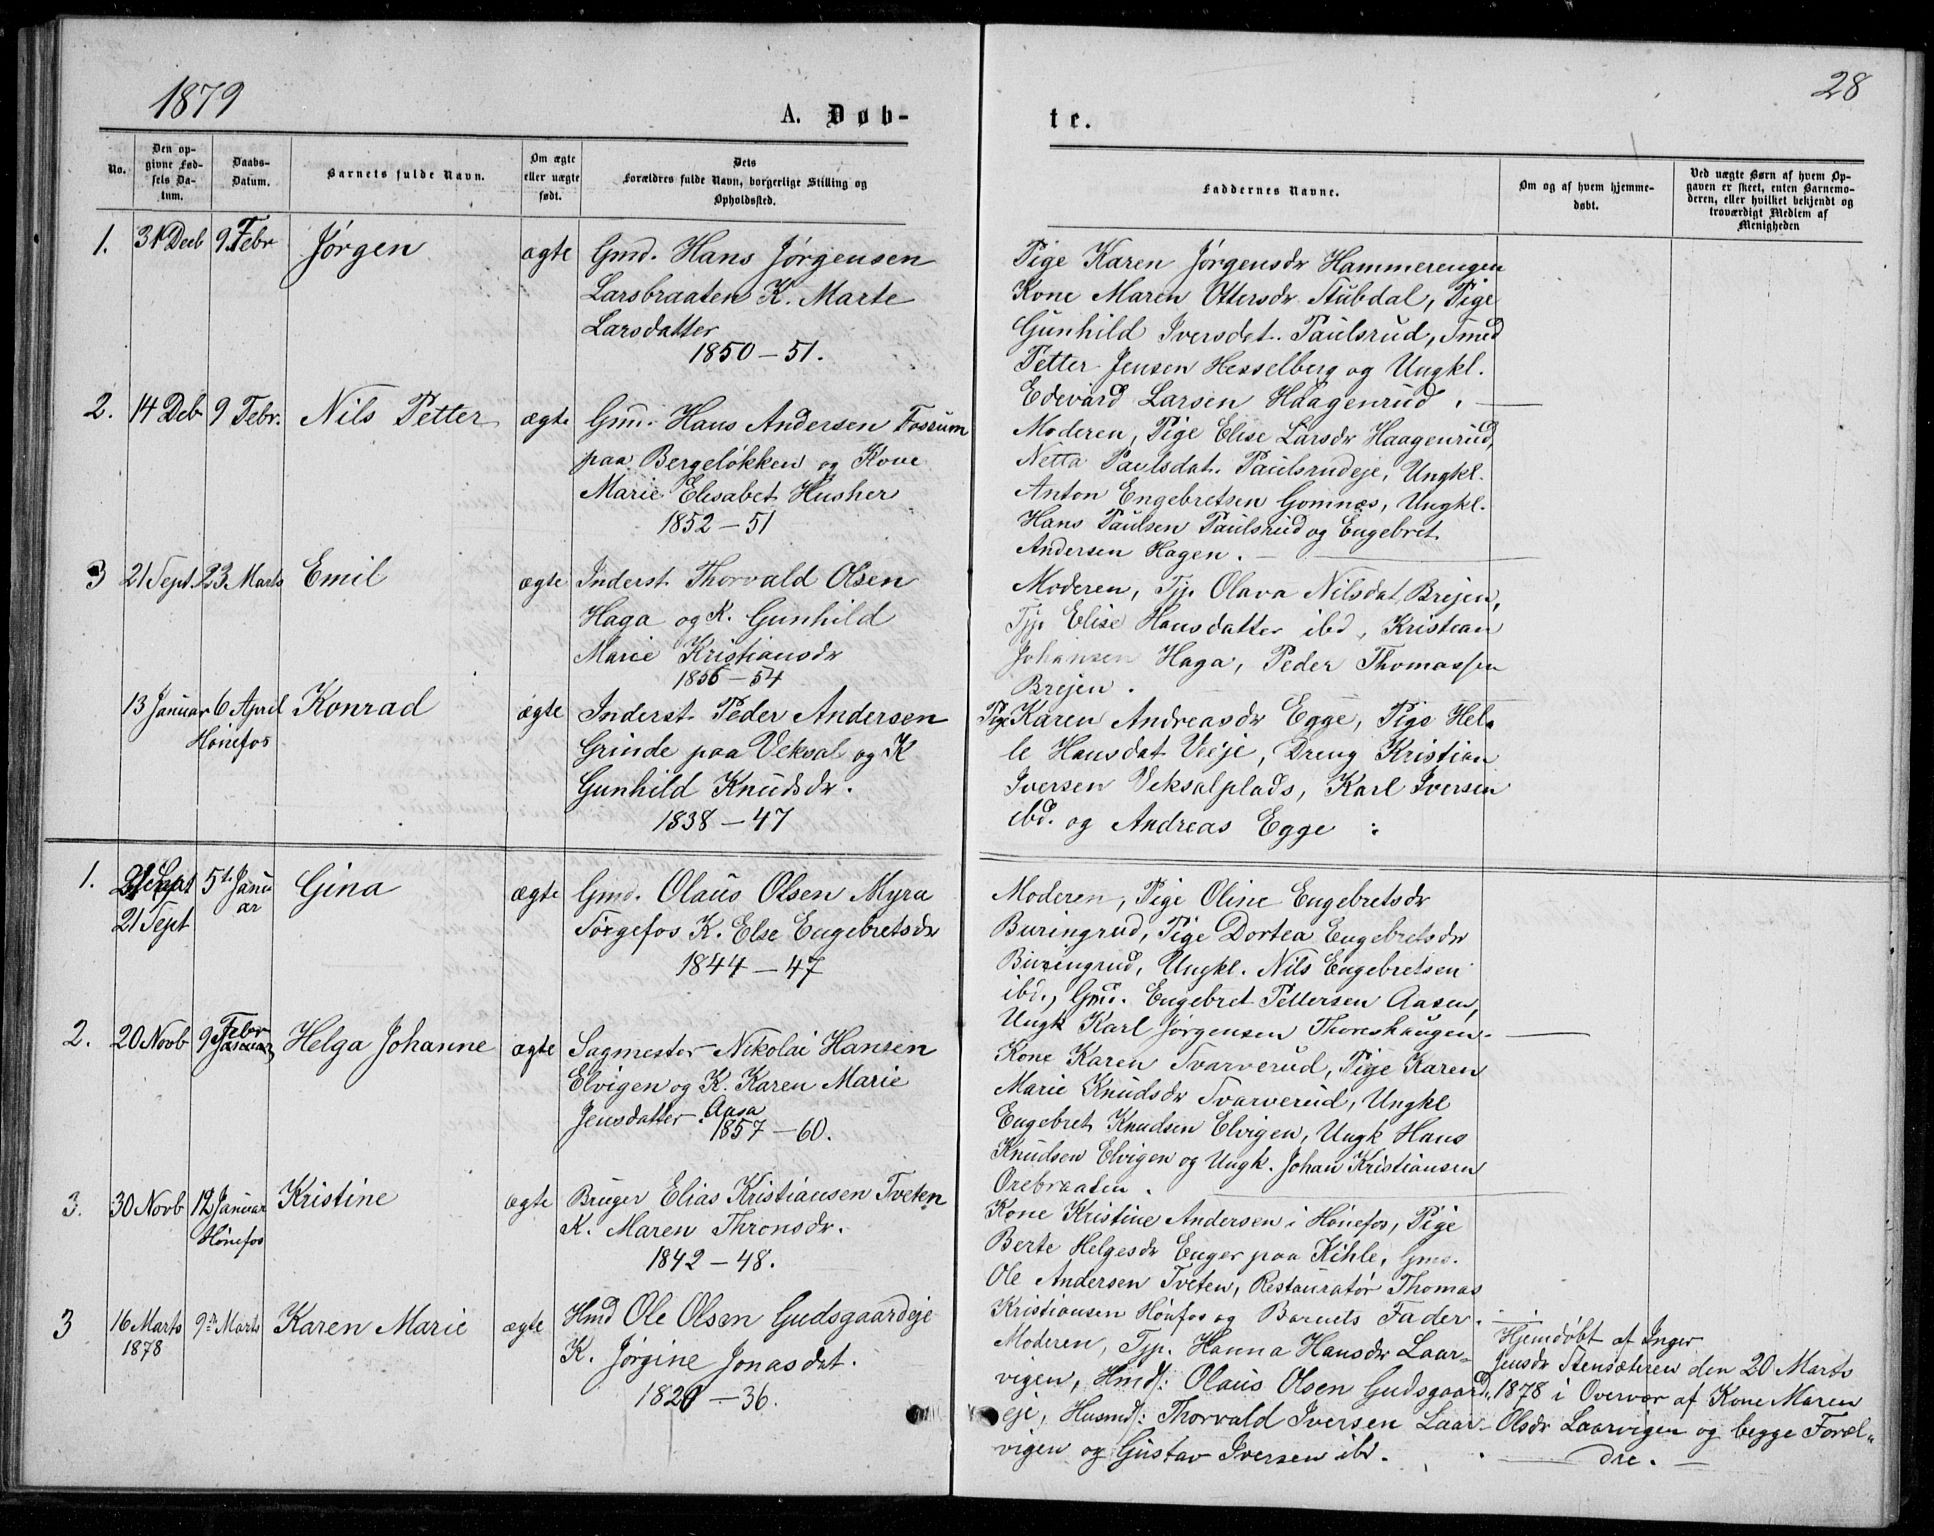 1879
28
A. Døb-
te.
No.
Den op-
givne Fød-
sels Da-
tum.
Daabs-
Datum.
Barnets fulde Navn.
Om ægte
eller uægte
født.
Dets
Forældres fulde Navn, borgerlige Stilling og
Opholdssted.
Faddernes Navne.
Om og af hvem hjemme-
døbt.
Ved uægte Børn af hvem Op-
gaven er skeet, enten Barnemo-
deren, eller hvilket bekjendt og
troværdigt Medlem af
Menigheden
1. 31 Decb 9 Febr Jørgen ægte Gmd. Hans Jørgensen
Larsbraaten K. Marte
Larsdatter
1850 – 51.
Pige Karen Jørgensdr Hammerengen
Kone Maren Ottersdr Stubdal, Pige
Gunhild Iversdat. Paulsrud, Smed
Petter Jensen Hesselberg og Ungkl.
Edevard Larsen Haagenrud. —
2. 14 Deb 9 Febr. Nils Petter ægte Gmd. Hans Andersen Fossum
paa Bergeløkken og Kone
Marie Elisabet Husher
1852 – 51
Moderen, Pige Elise Larsdr Haagenrud,
Netta Paulsdat. Paulsrudeje, Ungkl.
Anton Engebretsen Gomnæs, Ungkl.
Hans Paulsen Paulsrud og Engebret
Andersen Hagen. —
3 21 Sept. 23 Marts Emil ægte Inderst Thorvald Olsen
Haga og K. Gunhild
Marie Kristiansdr
1856 – 54
Moderen, Tjp. Olava Nilsdat Brejen,
Tjp Elise Hansdatter ibd, Kristian
Johansen Haga, Peder Thomassen
Brejen.
13 Januar 6 April Konrad ægte Inderst Peder Andersen
Hønefos
Grinde paa Veksal og K
Gunhild Knudsdr.
1838 – 47
Pige Karen Andreasdr Egge, Pige Hel-
le Hansdat Veeje, Dreng Kristian
Iversen Veksalplads, Karl Iversen
ibd. og Andreas Egge :
1. 21 Sept 5t Janu
ar
21 Sept
Gina ægte Gmd. Olaus Olsen Myra
Tørgefos K. Else Engebretsdr
1844 – 47
Moderen, Pige Oline Engebretsdr
Buringrud, Pige Dortea Engebretsdr
Buringrud, Ungkl. Nils Engebretsen
ibd., Gmd. Engebret Pettersen Aasen,
Ungk Karl Jørgensen Thoreshaugen.
2. 20 Novb 9 Januar Febr Helga Johanne ægte Sagmester Nikolai Hansen
Elvigen og K. Karen Marie
Jensdatter Aasa
1857 – 60.
Kone Karen Tvarverud, Pige Karen
Marie Knudsdr Tvarverud, Ungkl
Engebret Knudsen Elvigen, Ungk Hans
Knudsen Elvigen og Ungk. Johan Kristiansen
Orebraaten.
3. 30 Novb 12 Januar Kristine ægte Bruger Elias Kristiansen Tveten
Hønefos
K. Maren Thronsdr.
1842 – 48.
Kone Kristine Andersen i Hønefos, Pige
Berte Helgesdr Enger paa Kihle, Gmd.
Ole Andersen Tveten, Restauratør Thomas
Kristiansen Hønfos og Barnets Fader. —
3 16 Marts 9n Marts Karen Marie ægte Hmd Ole Olsen Gudsgaardeje
1878
K. Jørgine Jonasdat.
1820 – 36.
Moderen, Tjp. Hanna Hansdr Laar-
vigen, Hmd: Olaus Olsen Gudsgaard,
eje, Husmd: Thorvald Iversen Laar-
vigen og Gustav Iversen ibd.
Hjemdøbt af Inger
Jensdr Stensæteren den 20 Marts
1878 i Overvær af Kone Maren
Olsdr Laarvigen og begge Foræl„
dre. —